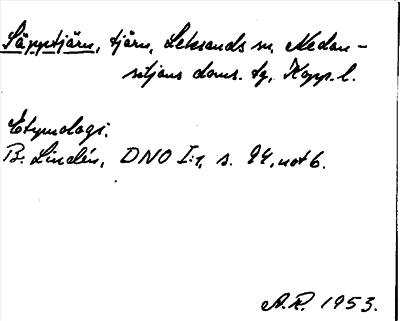 Säpptjärn, tjärn, Leksands sn, Nedan-
siljans doms. tg, Kopp. l.
Etymologi.
B. Lindén, DNO I:1, s. 94, not 6.
A.R. 1953.